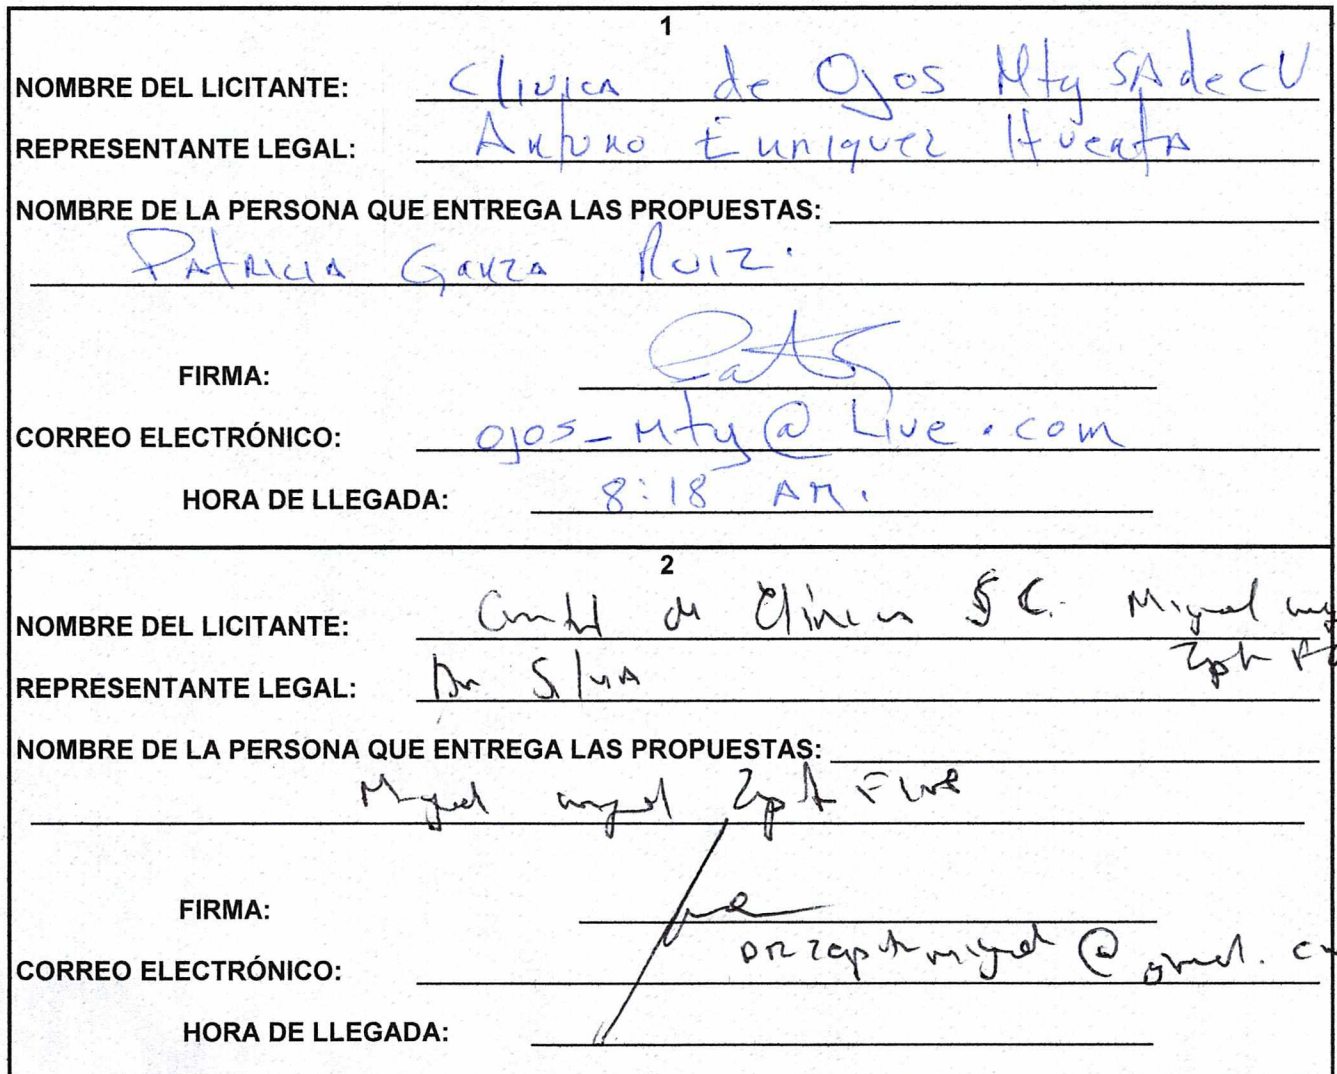 1
NOMBRE DEL LICITANTE: Clinica de Ojos Mty SA de CV
REPRESENTANTE LEGAL: Arturo Enriquez Huerta
NOMBRE DE LA PERSONA QUE ENTREGA LAS PROPUESTAS:
Patricia Garza Ruiz.
FIRMA:
CORREO ELECTRÓNICO: ojos_Mty@Live.com
HORA DE LLEGADA: 8:18 AM.
2
NOMBRE DEL LICITANTE: S.C. Miguel
REPRESENTANTE LEGAL: Silva
NOMBRE DE LA PERSONA QUE ENTREGA LAS PROPUESTAS:
Miguel
FIRMA:
CORREO ELECTRÓNICO:
HORA DE LLEGADA: